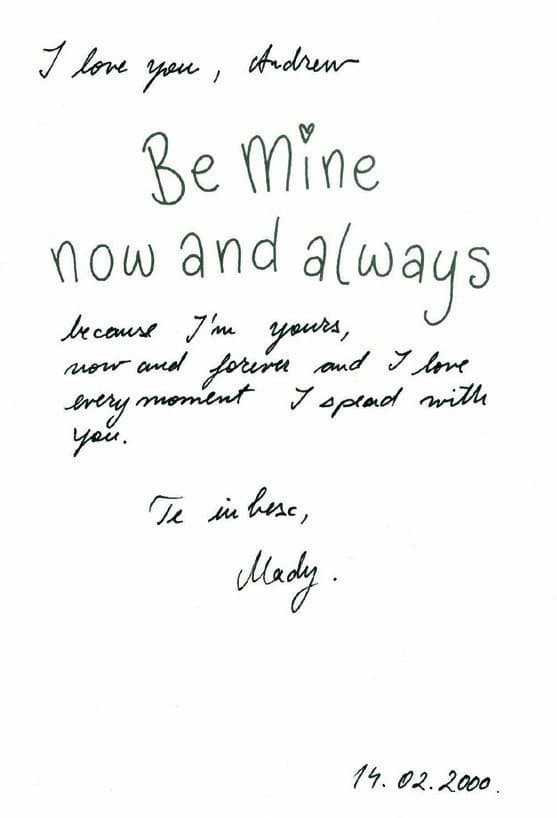 I love you, Andrew
Be Mine
now and always
because I'm yours,
now and forever and I love
every moment I spend with
you.
Te iubesc,
Mady.
14.02.2000.